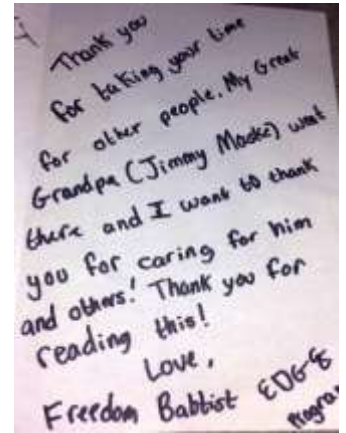 Thank you
for taking your time
for other people. My Great
Grandpa (Jimmy Mocke) went
there and I want to thank
you for caring for him
and others! Thank you for
reading this!
Love,
Freedom Babbist EDGE
Program